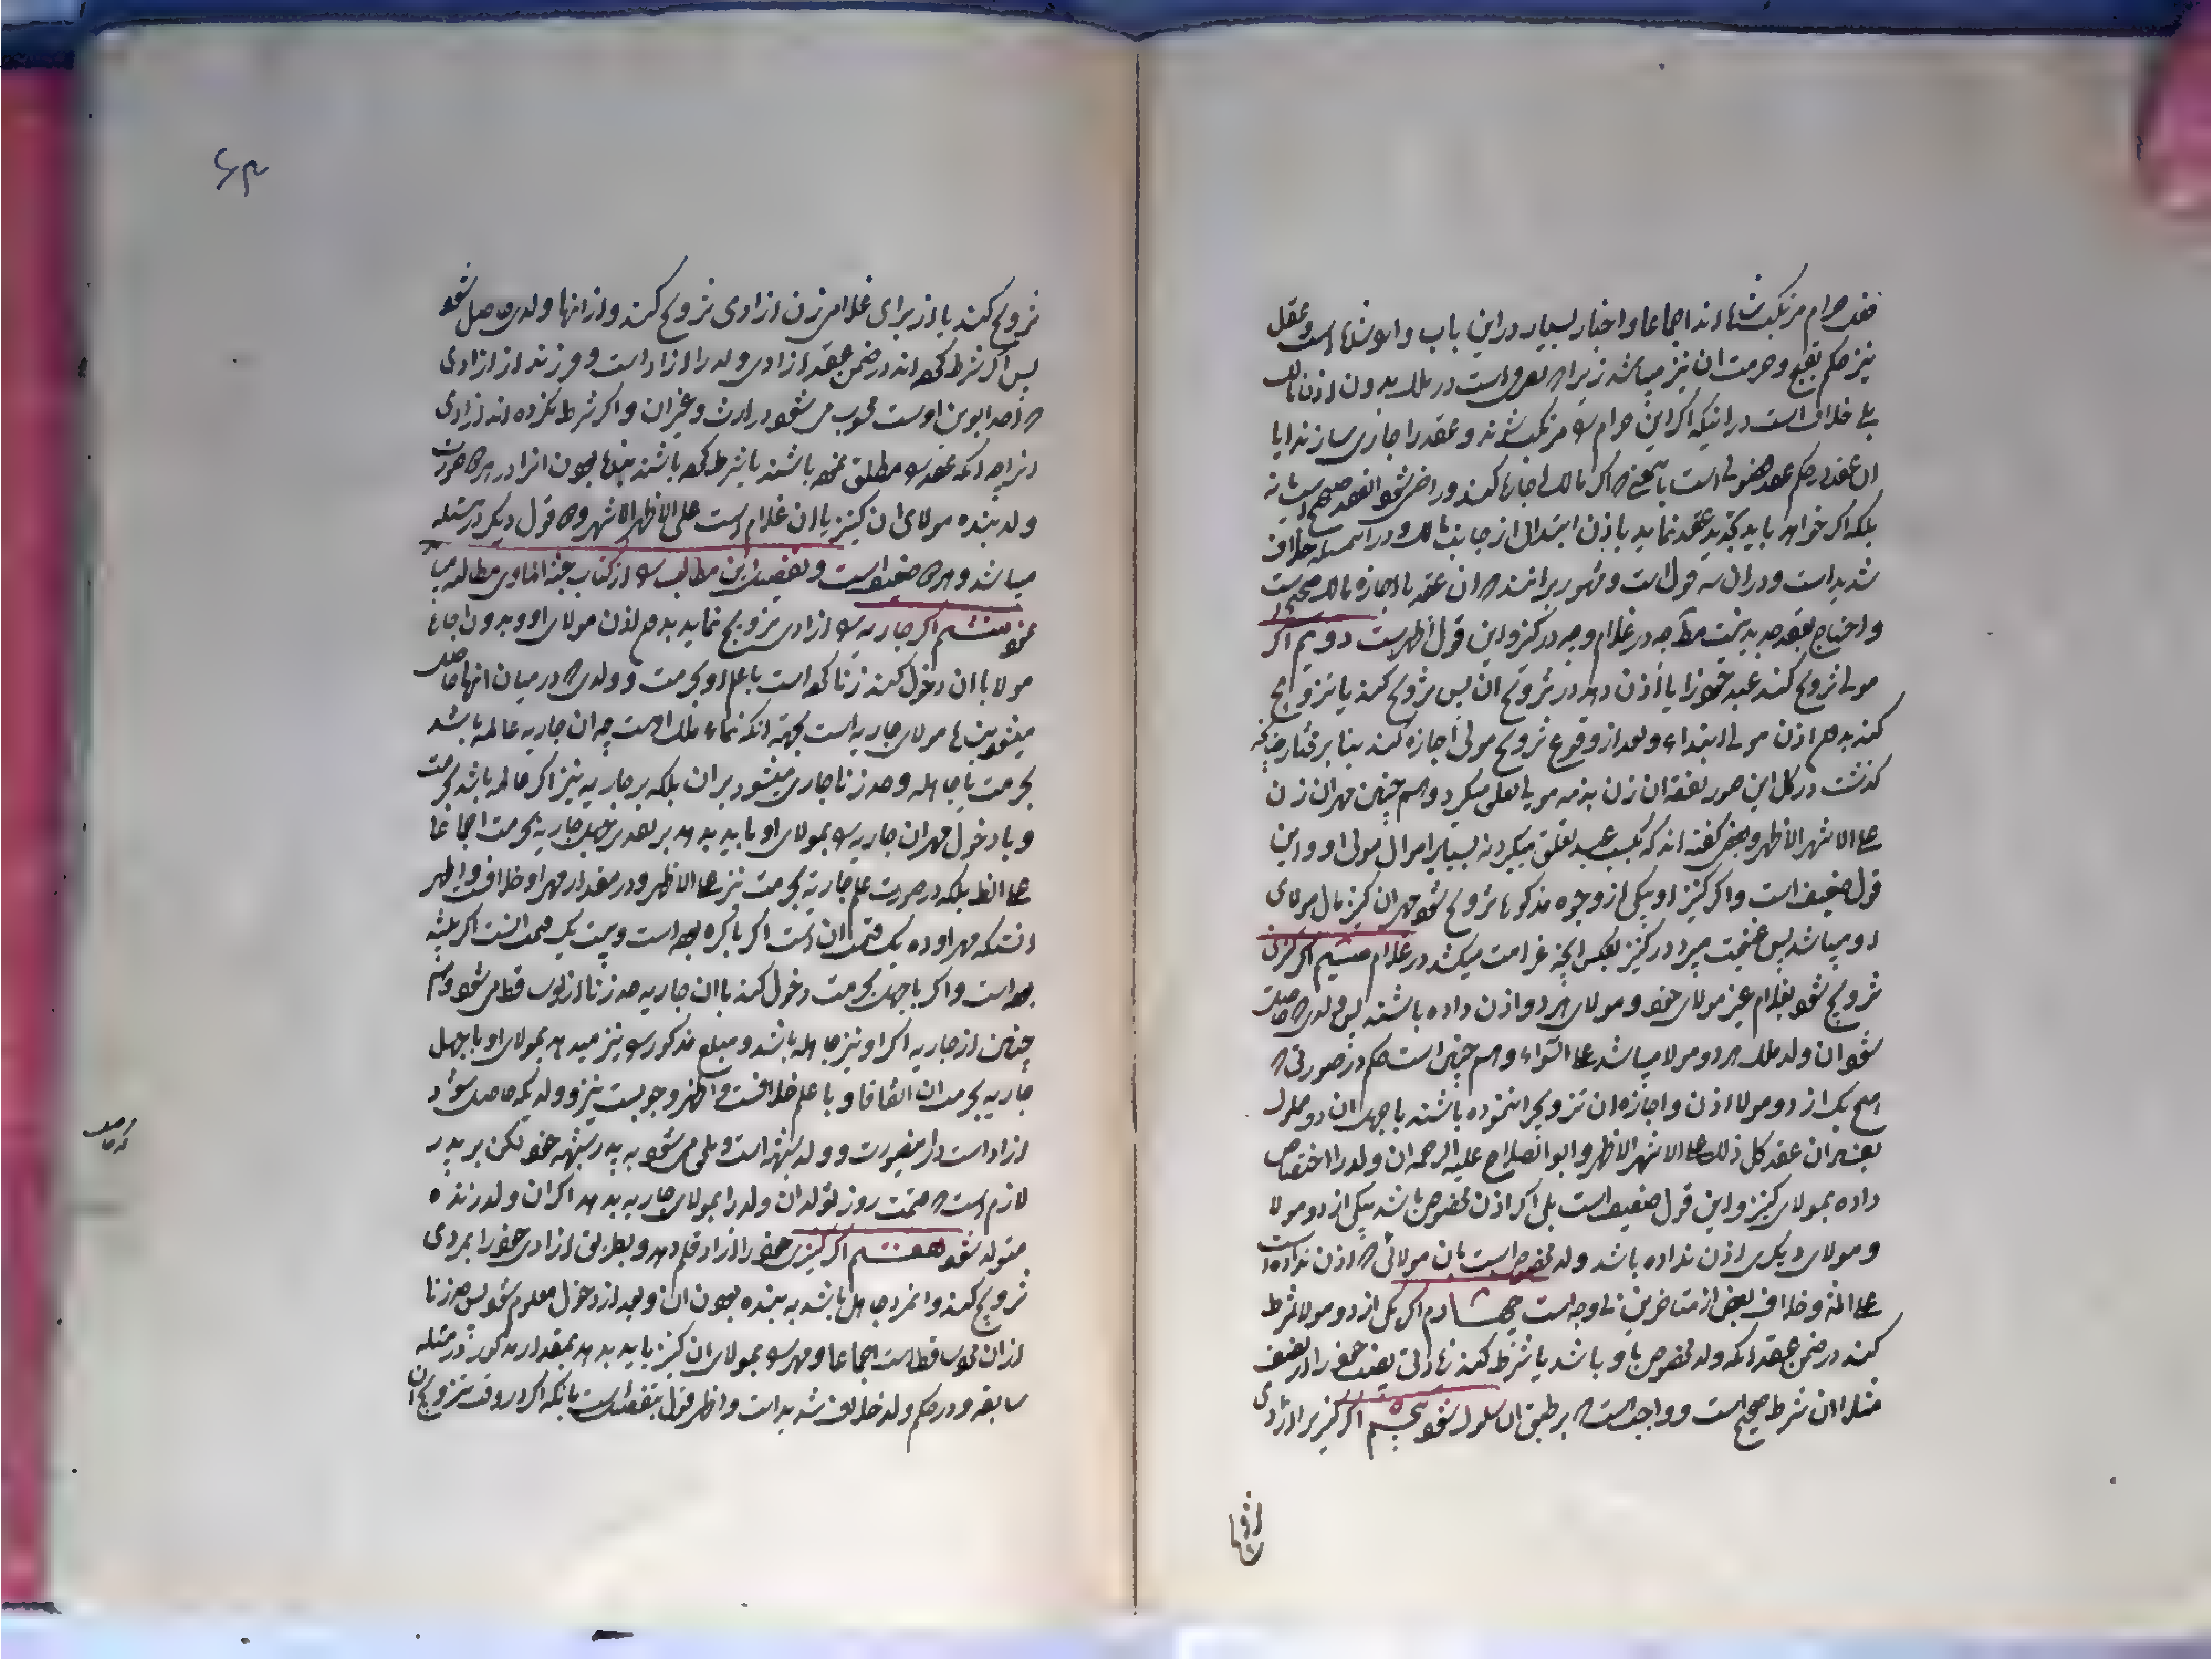 فعل حرام مرتکب شده‌اند اجماعا و اخبار بسیار در این باب وارد شده است و عقل
نیز حکم بقبح و حرمت ان نیز میباشد زیراکه تصرف است در ملک بدون اذن مالک
بلی خلاف است در اینکه اگر این حرام را مرتکب شوند و عقد را جاری سازند ایا
ان عقد در حکم عقد فضولی است باینمعنی که اگر مالک اجازه کند و راضی شود انعقد صحیح است یا نه
بلکه اگر خواهد باید تجدید عقد نماید باذن ابتدائی از جانب مالک و در این مسئله خلاف
شدید است و در ان سه قول است و مشهور برانند که ان عقد با اجازه مالک صحیح است
و احتیاج بعقد جدید نیست مطلقا چه در غلام و چه در کنیز و این قول اظهر است دویم اگر
مولی تزویج کند عبد خود را یا اذن دهد در تزویج ان پس تزویج کند یا تزویج
کند بدون اذن مولی ابتداء و بعد از وقوع تزویج مولی اجازه کند بنا بر مختار چنانچه
گذشت در کل این صور نفقه ان زن بذمه مولی تعلق میگیرد و همچنین مهر ان زن
علی الاشهر الاظهر و بعضی گفته‌اند که بکسب عبد تعلق میگیرد نه بسایر اموال مولی او و این
قول ضعیف است و اگر کنیز او بیکی از وجوه مذکوره تزویج شود مهر ان کنیز مال مولای
او میباشد پس غنیمت میبرد در کنیز بعکس انچه غرامت میکشد در غلام سیّم اگر کنیزی
تزویج شود بغلام غیر مولای خود و مولای هر دو اذن داده باشند پس ولدی که حاصل
شود ان ولد ملک هر دو مولا میباشد علی السواء و هم چنین است حکم در صورتی که
هیچ یک از دو مولا اذن و اجازه ان تزویج را ننموده باشند با جهل ان دو مملوک
بفساد ان عقد کل ذلک علی الاشهر الاظهر و ابو الصلاح علیه الرحمه ان ولد را اختصاص
داده بمولای کنیز و این قول ضعیف است بلی اگر اذن مخصوص باشد بیکی از دو مولا
و مولای دیگری اذن نداده باشد ولد مخصوص است بان مولائی که اذن نداده است
علی المش و خلاف بعضی از متاخرین بی وجه است چهارم اگر یکی از دو مولا شرط
کند در ضمن عقد انکه ولد مخصوص باو باشد یا شرط کند زیادتی بعنی حق را در نصف
مثلا ان شرط صحیح است و واجب است که بر طبق ان سلوک شود پنجم اگر کنیز را ازادی
تزویج کند یا از برای غلامی زن ازادی تزویج کند و از انها ولدی حاصل شود
پس اگر شرط کرده‌اند در ضمن عقد ازادی ولد را ازاد است و فرزند از ازادی
که احد ابوین اوست محسوب می شود در ارث و غیر ان و اگر شرط نکرده اند ازادی
انرا چه انکه عقد را مطلق نموده باشند یا شرط کرده باشند بنده بودن انرا در هر دو صورت
ولد بنده مولای ان کنیز یا ان غلام است علی الاظهر الاشهر و دو قول دیگر در مسئله
میباشد و هر دو ضعیف است و تفصیل این مطالب را از کتاب مطالعه
نمود ششم اگر جاریه را ازادی تزویج نماید بدون اذن مولای او و بدون اجازه
مولا با ان دخول کند زنا کرده است با علم او بحرمت و ولدی که در میان انها حاصل
میشود بنده مولای جاریه است بجهة انکه نماء ملک اوست چه ان جاریه عالمه باشد
بحرمت یا جاهله و حد زنا جاری میشود بر ان بلکه بر جاریه نیز اگر عالمه باشد بحرمت
و با دخول مهر ان جاریه را بمولای او باید بدهد بر تقدیر جهل جاریه بحرمت اجماعا
علی الظ بلکه در صورت علم جاریه بحرمت نیز علی الاظهر و در مقدار مهر او خلاف و اظهر
انستکه مهر او ده یک قیمت ان است اگر باکره بوده است و بیست یک قیمت انست اگر ثیبه
بوده است و اگر با جهل بحرمت دخول کند با ان جاریه حد زنا از او ساقط می شود و هم
چنین از جاریه اگر او نیز جاهله باشد و مبلغ مذکور را نیز میدهد بمولای او با جهل
جاریه بحرمت ان اتفاقا و با علم خلافست و اظهر وجوبست نیز و ولدیکه حاصل شود
ازاد است در اینصورت و ولد شبهه است و ملحق می شود به پدر شبهه خود لکن بر پدر
لازم است که قیمت روز تولد ان ولد را بمولای جاریه بدهد اگر ان ولد زنده
متولد شود هفتم اگر کنیزی خود را ازاد قلم دهد و بطریق ازادی خود را بمردی
تزویج کند و انمرد جاهل باشد به بنده بودن ان و بعد از دخول معلوم شود پس حد زنا
از ان مرد ساقط است اجماعا و مهر را بمولای ان کنیز باید بدهد بمقدار مذکور در مسئله
سابقه و در حکم ولد خلاف شدید است و اظهر قول بتفصیل است بانکه اگر در وقت تزویج ان